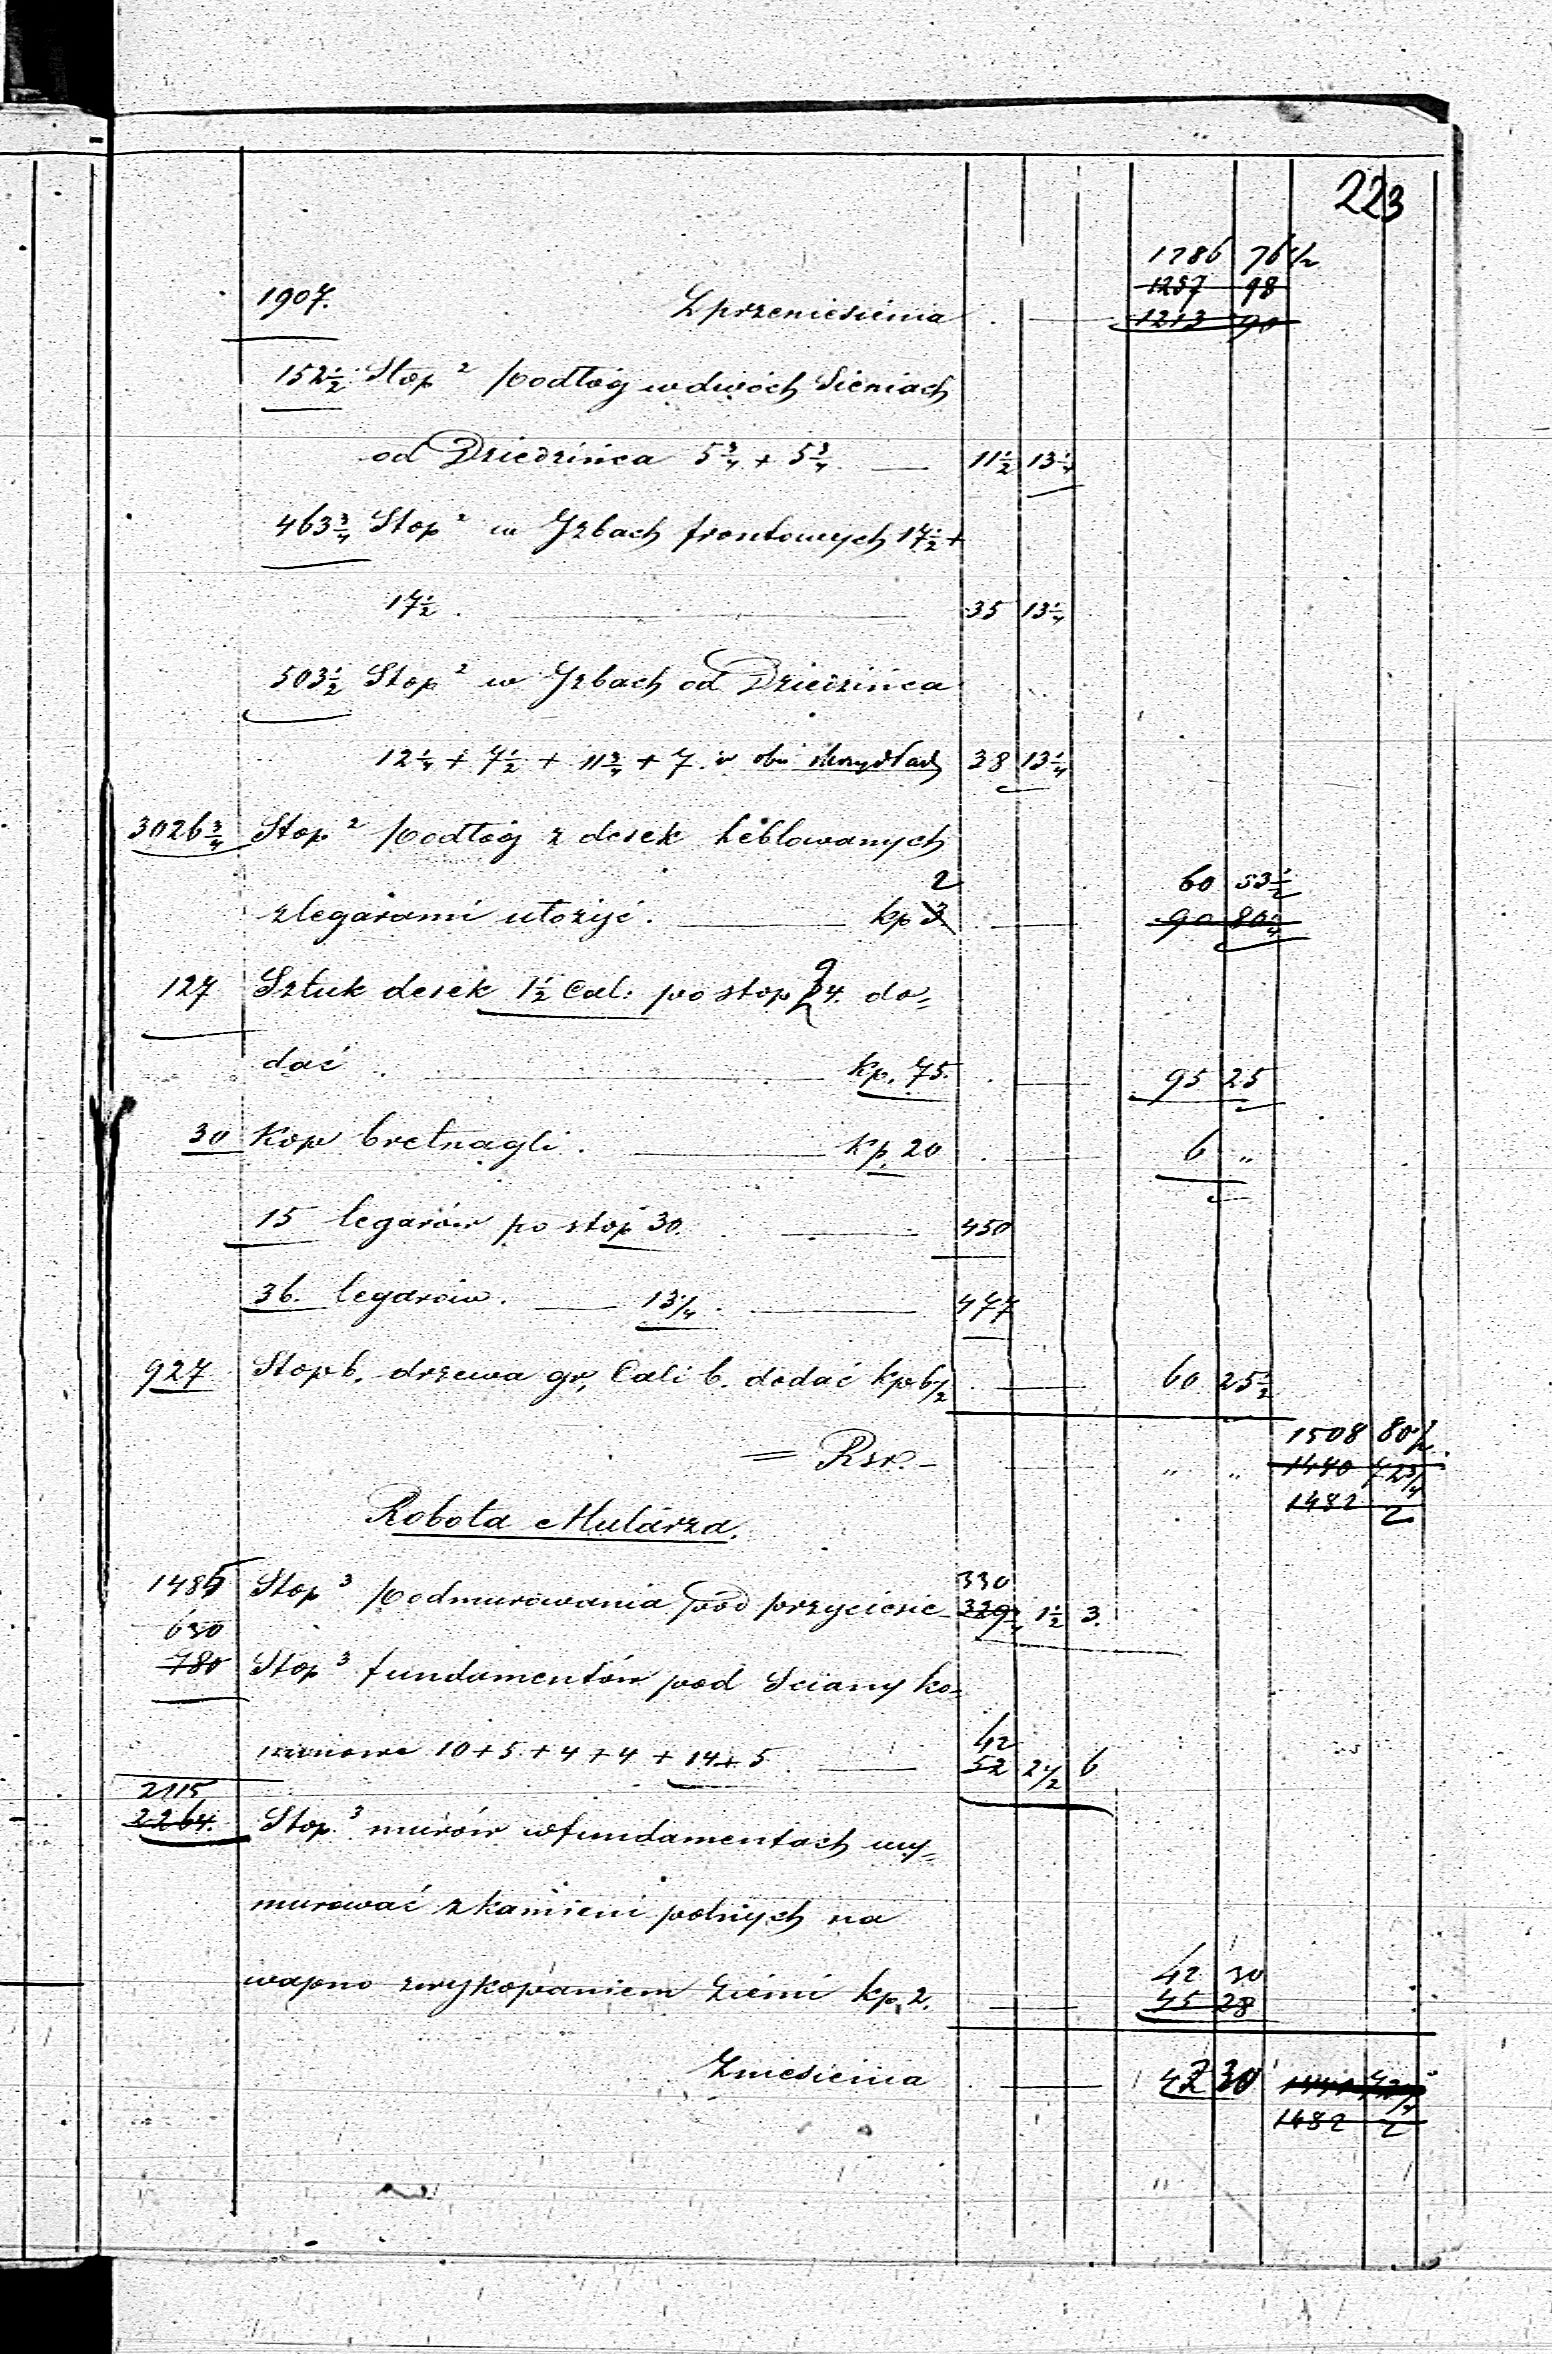 223
1286 76 1/2
1257 98
1907. Z przeniesienia 1213 90
152 1/2 Stop ² podłóg w dwóch Sieniach
od Dziedzińca 5 3/4 + 5 3/4 — 11 1/2 13 1/4
463 3/4 Stop ² w Izbach frontowych 17 1/2 +
17 1/2 . — 35 13 1/4
503 1/2 Stop ² w Izbach od Dziedzińca
12 1/4 + 7 1/2 + 11 3/4 + 7. w obu skrzydłach 38 13 1/4
3026 3/4 Stop ² podłóg z desek heblowanych
2 60 53 1/2
z legarami ułożyć. — kp 3 — 90 80 1/4
127 Sztuk desek 1 1/2 Cal: po stop 24. do=
dać . — kp. 75. — 95 25
30 Kop bretnagli . — kp. 20 — 6 "
15 legarów po stóp 30. — 450
36. legarów. — 13 1/4 . — 477
927 Stop b. drzewa gr. Cali 6. dodać kp 6 1/2 — 60 25 1/2
1508 80 1/2
= Rsr. — " " 1480 72 3/4
1482 2
Robota Mularza.
1485 Stop ³ podmurowania pod przyciesie 330
329 3/4 1 1/2 3.
630
780 Stop ³ fundamentów pod Sciany ko=
42
minowe 10 + 5 + 4 + 4 + 14 + 5 . — 52 2 1/2 6
2115
2264. Stop. ³ murów w fundamentach wy=
murować z kamieni polnych na
42 30
wapno z wykopaniem ziemi kp. 2. — 45 28
Zniesienia — 42 30
1482 2